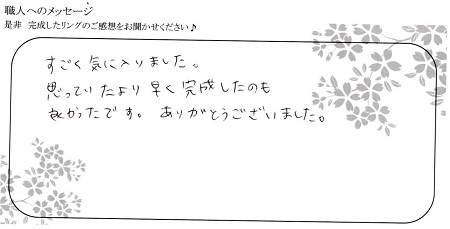 職人へのメッセージ
是非 完成したリングのご感想をお聞かせください♪
すごく気に入りました。
思っていたより早く完成したのも
良かったです。ありがとうございました。